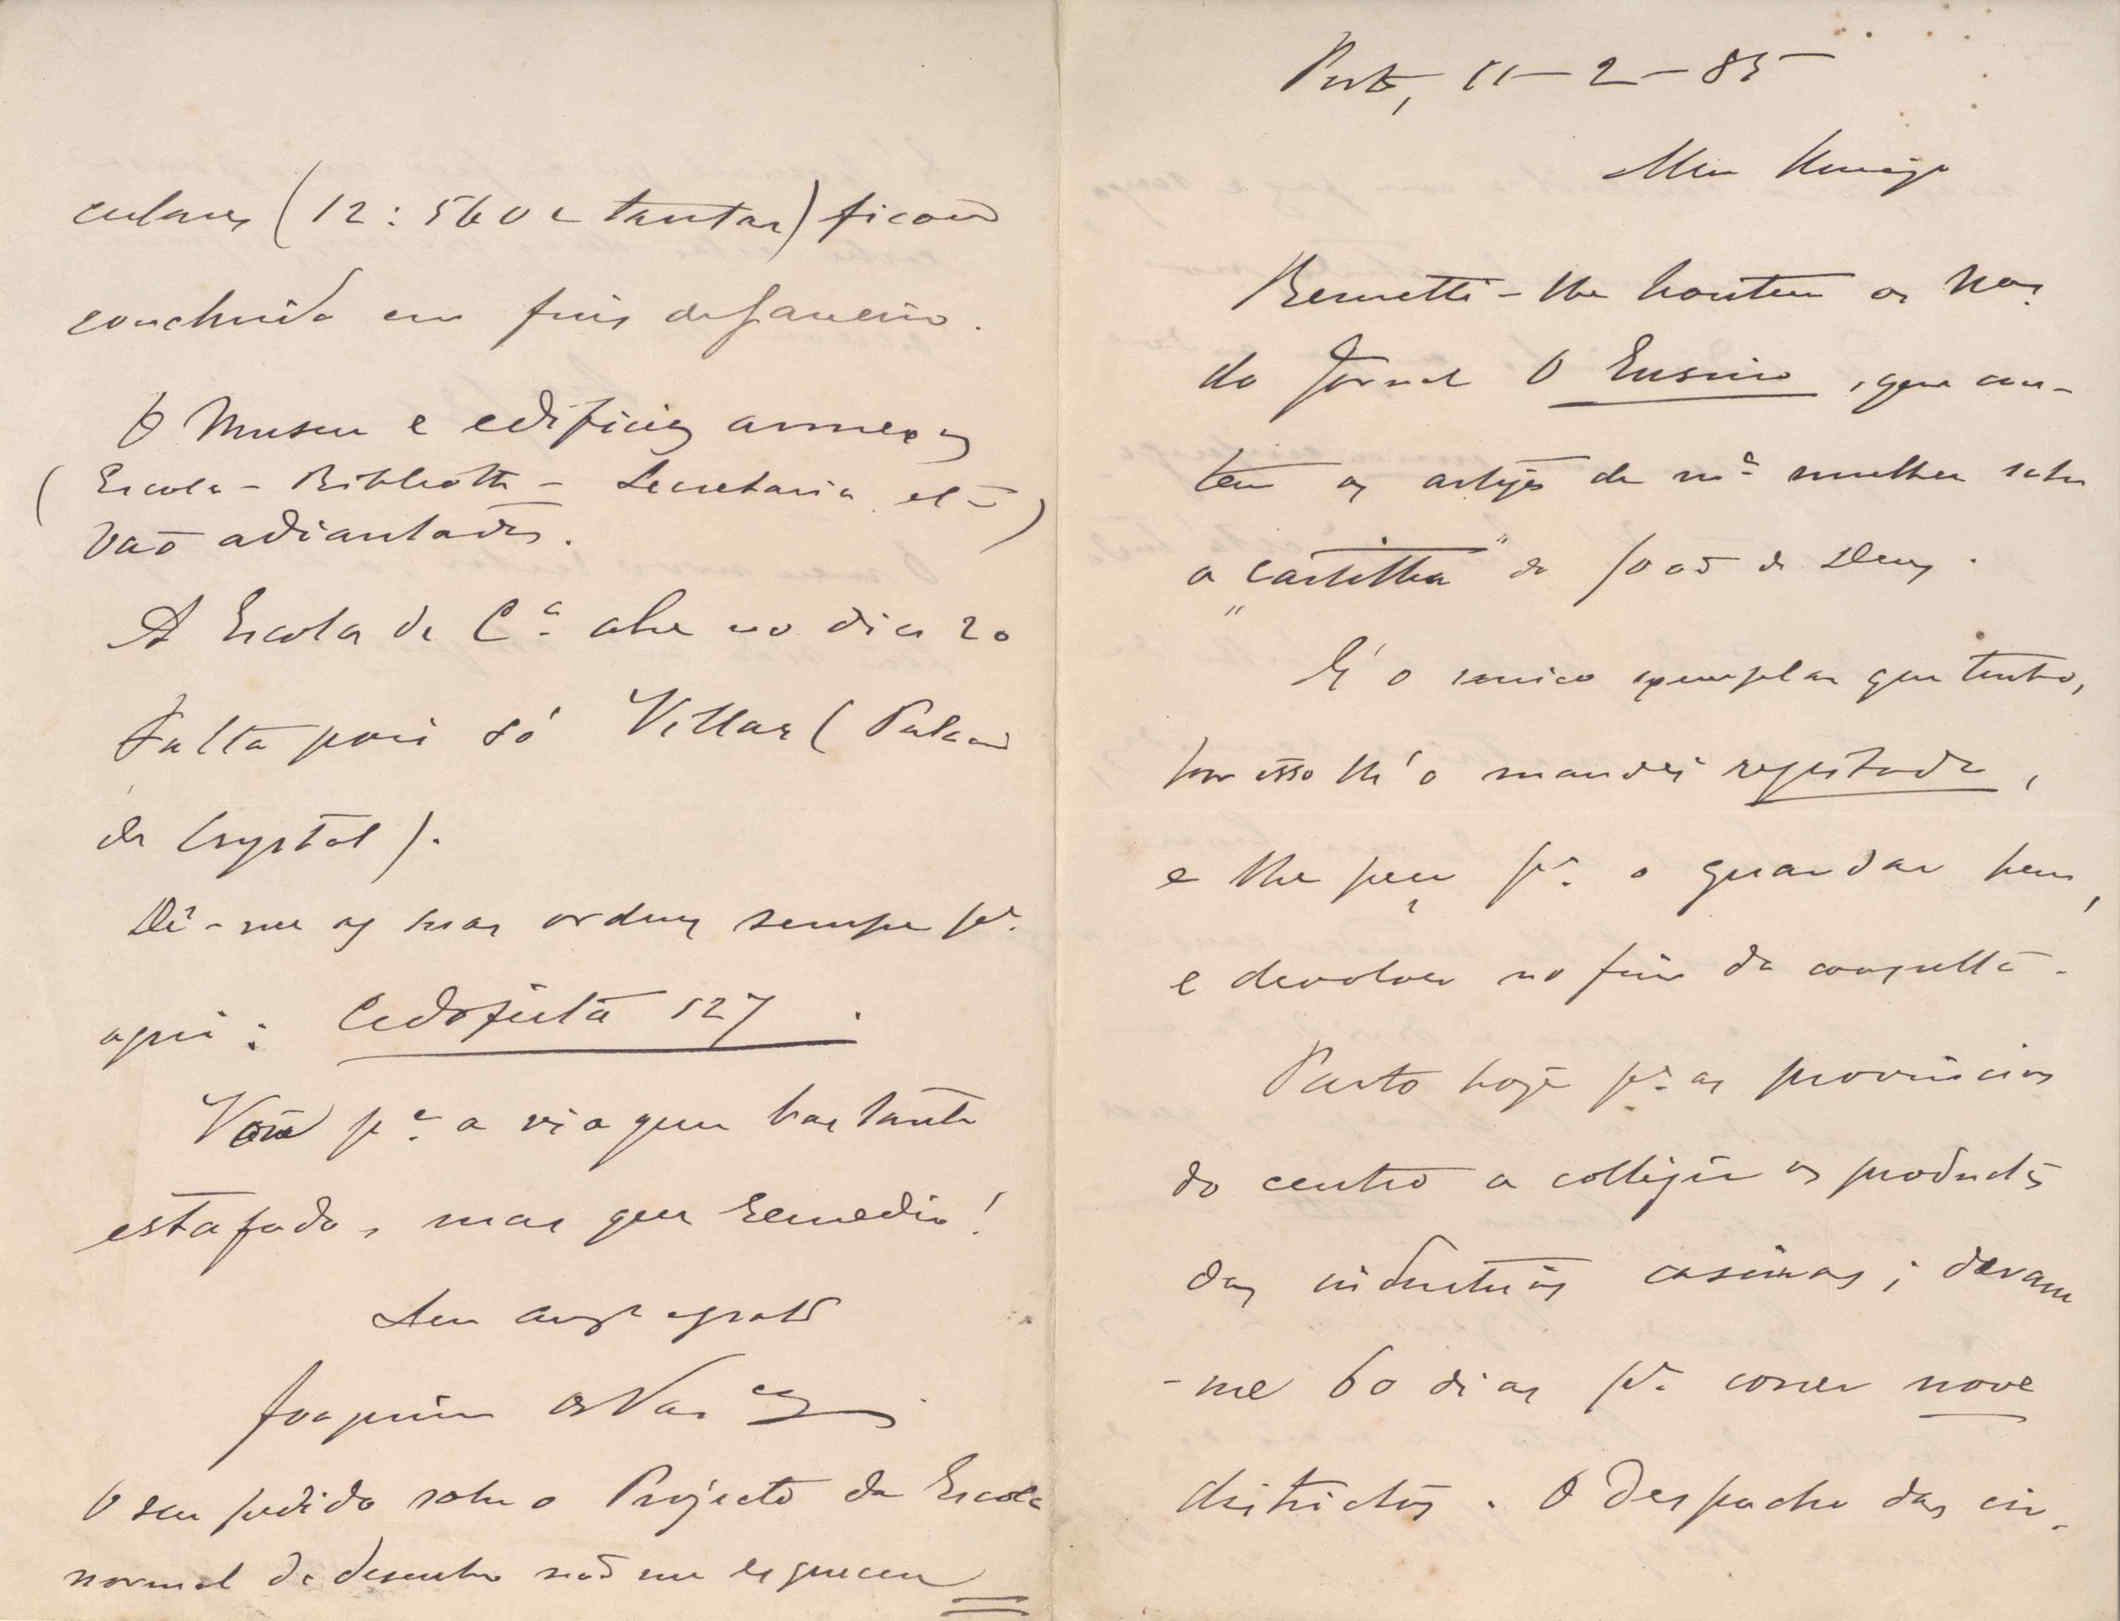 Porto, 11-2-85
Meu Amigo
Remetti-lhe hontem os Nos.
do Jornal O Ensino, que con-
tem os artigos de mª mulher sobre
a "Cartilha" de João de Deus.
É o unico exemplar que tenho,
por isso lh'o mandei registado,
e lhe peço pª. o guardar bem,
e devolver no fim da consulta.
Parto hoje pª. as provincias
do centro a colligir os productos
das industrias caseiras; deram
-me 60 dias pª. correr nove
districtos. O Despacho das cir-
culares (12:560 e tantas) ficou
concluido em fins de Janeiro.
O Museu e edificios annexos
(Escola - Bibliotha - Secretaria etc)
vão adiantados.
A Escola de Cª. abre no dia 20
Falta pois só Villar (Palacio
de Crystal).
Dê-me as suas ordens sempre pª.
aqui: Cedofeita 527.
Vou pª. a viagem bastante
estafado, mas que remedio!
Seu amgº obrigado
Joaquim de Vasccos
O seu pedido sobre o Projecto da Escola
normal de desenho não me esqueceu